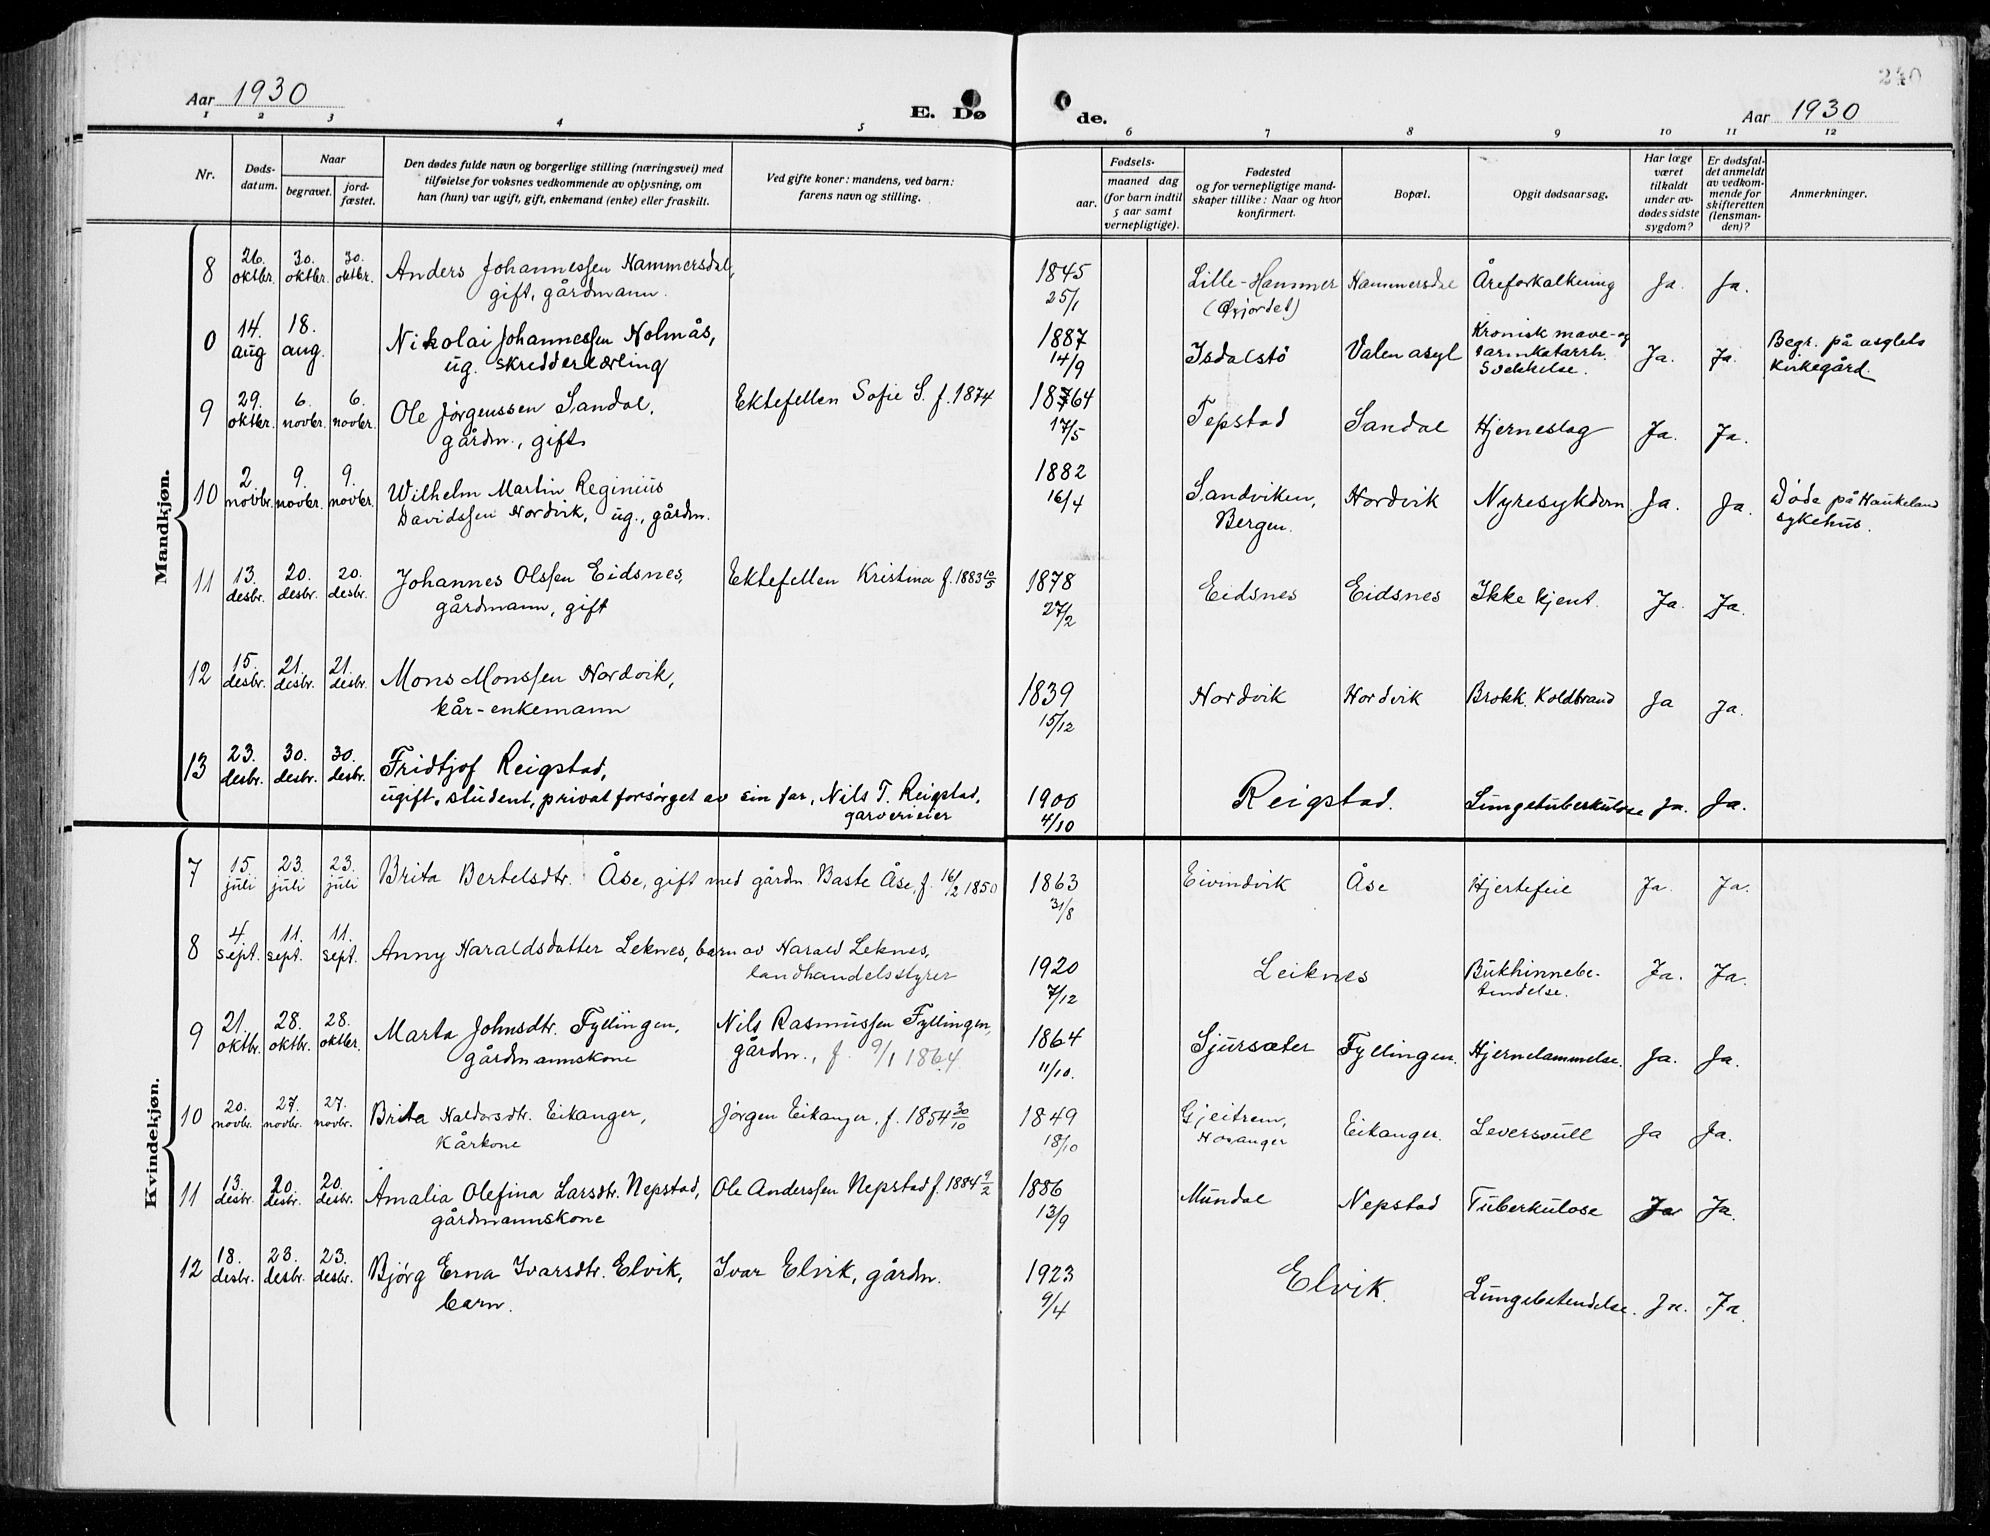 240
Aar 1930
E. Døde.
Aar 1930
1 2 3 4 5 6 7 8 9 10 11 12
Nr.
Døds-datum.
Naar
begravet.
jord-fæstet.
Den dødes fulde navn og borgerlige stilling (næringsvei) med
tilføielse for voksnes vedkommende av oplysning, om
han (hun) var ugift, gift, enkemand (enke) eller fraskilt.
Ved gifte koner: mandens, ved barn:
farens navn og stilling.
Fødsels-
aar.
maaned dag
(for barn indtil
5 aar samt
vernepligtige).
Fødested
og for vernepligtige mand-
skaper tillike: Naar og hvor
konfirmert.
Bopæl.
Opgit dødsaarsag.
Har læge
været
tilkaldt
under av-
dødes sidste
sygdom?
Er dødsfal-
det anmeldt
av vedkom-
mende for
skifteretten
(lensman-
den)?
Anmerkninger.
Mandkjøn.
8 26. oktbr. 30. oktbr. 30. oktbr. Anders Johannessen Hammersdal, 1845 Lille-Hammer Hammersdal Åreforkalkning Ja. Ja.
gift, gårdmann. 25/1
0 14. aug 18. aug. Nikolai Johannessen Holmås, 1887 Isdalstö Valen asyl Kronisk mave- og Ja. Ja. Begr. på asylets
ug. skredderlærling 14/9 tarmkatarrh. Svekkelse. Kirkegård.
9 29. oktbr. 6. novbr. 6. novbr. Ole Jørgenssen Sandal, Ektefellen Sofie S. f. 1874 1864 Tepstad Sandal Hjerneslag Ja. Ja.
gårdm., gift 17/5
10 2 novbr. 9. novbr. 9. novbr. Wilhelm Martin Reginius 1882 Sandviken, Nordvik Nyresykdom Ja. Ja. Døde på Haukeland
Davidssen Nordvik, ug., gårdm. 16/4 Bergen. sykehus.
11 13. desbr. 20. desbr. 20. desbr. Johannes Olssen Eidsnes, Ektefellen Kristina f. 1883 10/5 1878 Eidsnes Eidsnes Ikke kjent. Ja. Ja.
gårdmann, gift 27/2
12 15. desbr. 21. desbr. 21. desbr. Mons Monssen Nordvik, 1839 Nordvik Nordvik Brokk. Koldbrand Ja Ja.
kår-enkemann 15/12
13 23. desbr. 30. desbr. 30. desbr. Fridtjof Reigstad,
ugift, student, privat forsørget av sin far, Nils T. Reigstad, 1900 Reigstad. Lungetuberkulose Ja. Ja.
garverieier 4/10
Kvindekjøn.
7 15. juli 23. juli 23. juli Brita Bertelsdtr. Åse, gift med gårdm. Baste Åse, f. 16/2 1850 1863 Eivindvik Åse Hjertefeil Ja. Ja.
31/8
8 4. sept. 11. sept. 11. sept. Anny Haraldsdatter Leknes, barn av Harald Leknes, 1920 Leiknes Bukhinnebe- Ja. Ja.
landhandelsstyrer 7/12 tendelse.
9 21. oktbr. 28. oktbr. 28. oktbr. Marta Johnsdtr. Fyllingen, Nils Rasmussen Fyllingen, 1864 Sjursæter Fyllingen. Hjernelammelse. Ja. Ja.
gårdmannskone gårdm., f. 9/1 1864 11/10.
10 20. novbr. 27. novbr. 27. novbr. Brita Haldorsdtr. Eikanger, Jørgen Eikanger, f. 1854 30/10 1849 Gjeitrem, Eikanger. Leversvull Ja Ja.
Kårkone 18/10 Hosanger
11 13. desbr. 20. desbr. 20. desbr. Amalia Olefina Larsdtr. Nepstad, Ole Anderssen Nepstad f. 1884 9/2 1886 Mundal Nepstad Tuberkulose Ja Ja.
gårdmannskone 13/9
12 18. desbr. 23. desbr. 23. desbr. Bjørg Erna Ivarsdtr. Elvik, Ivar Elvik, gårdm. 1923 Elvik. Lungebetendelse. Ja. Ja.
barn. 9/4